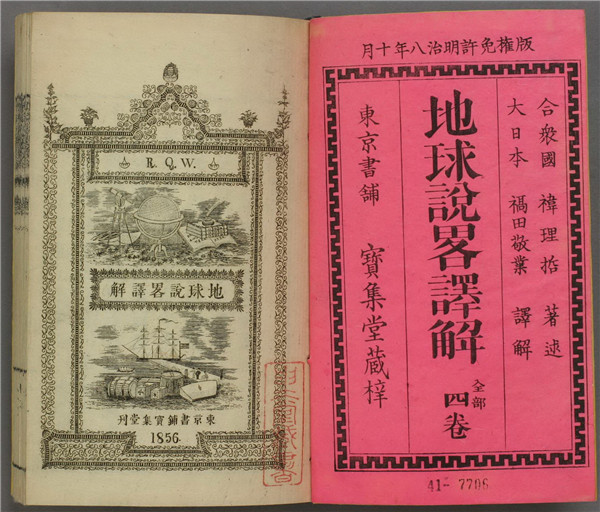 版權免許明治八年十月
合衆國 禕理哲 著述
大日本 福田敬業 譯解
地球說畧譯解 全部四卷
東京書舖 寶集堂藏梓
R.Q.W.
地球說畧譯解
東京書舖寶集堂刊
1856